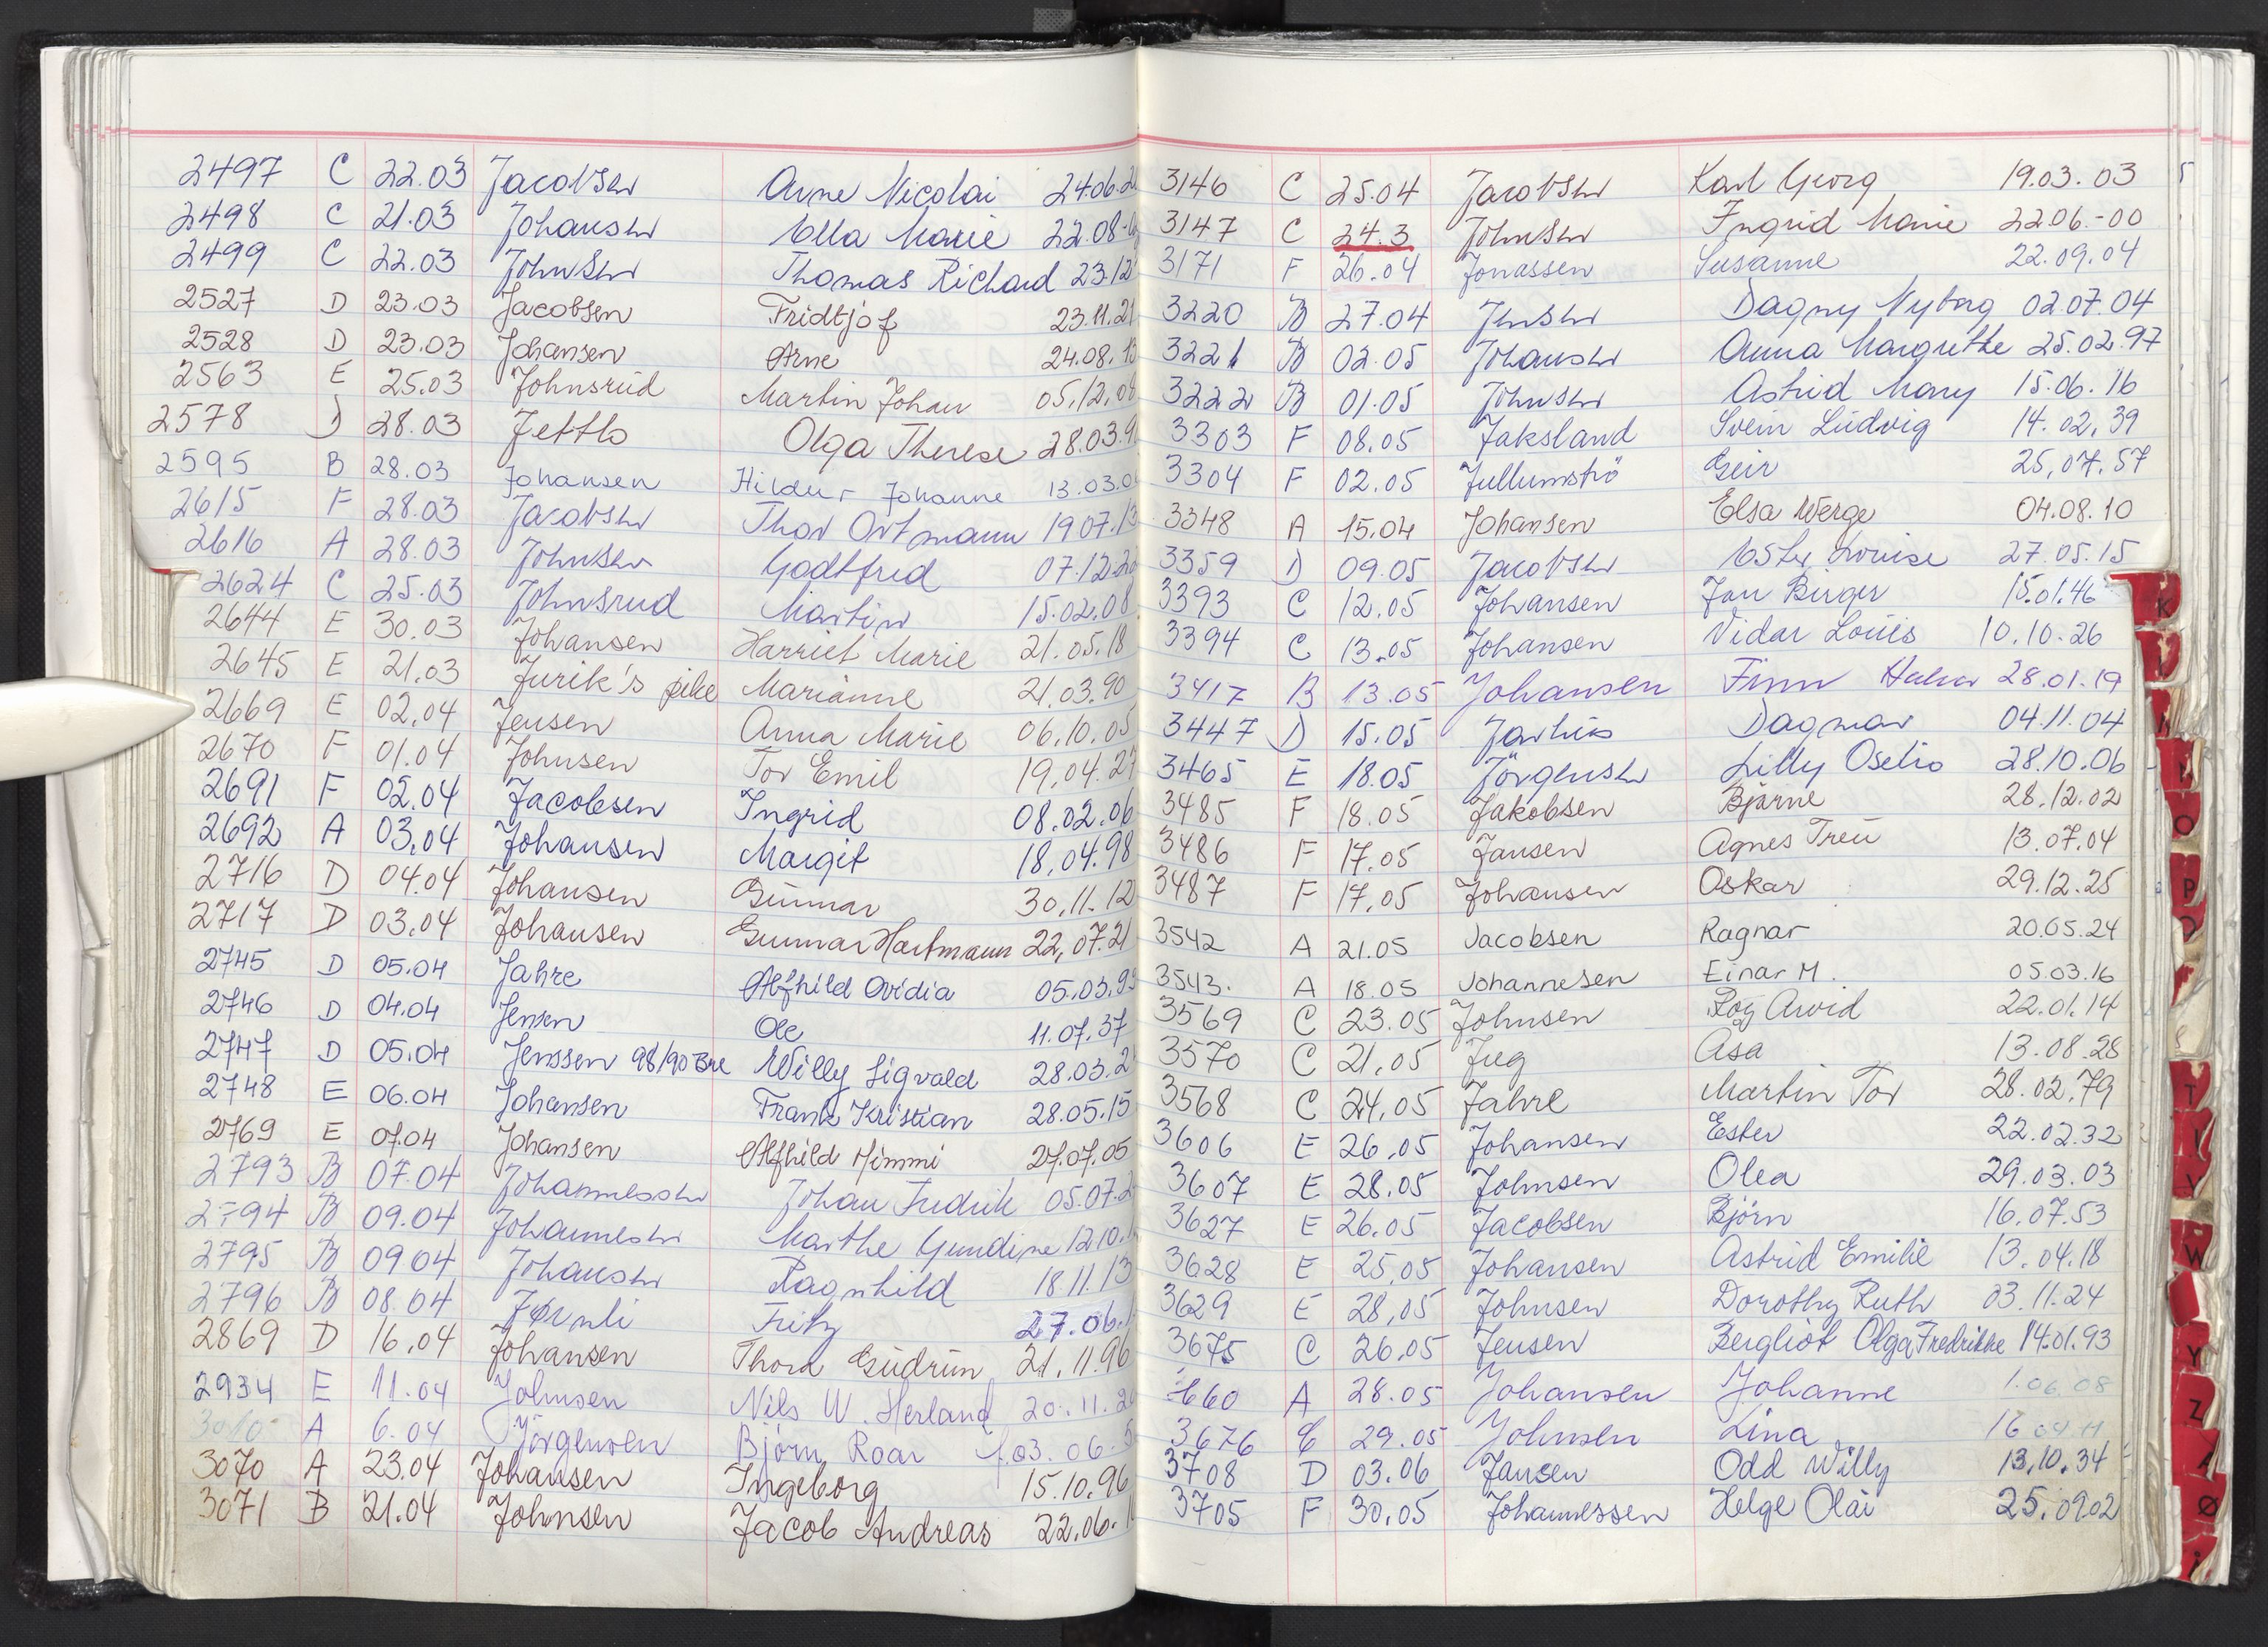 2497 C 22.03 Jacobsen Arne Nicolai 24.06.2
2498 C 21.03 Johansen Ella Marie 22.08
2499 C 22.03 Johnsen Thomas Richard 23.12
2527 D 23.03 Jacobsen Fridtjof 23.11.21
2528 D 23.03 Johansen Arne 24.08.13
2563 E 25.03 Johnsrud Martin Johan 05.12.08
2578 D 28.03 Jettlo Olga Therese 28.03.9
2595 B 28.03 Johansen Hildur Johanne 13.03.0
2615 F 28.03 Jacobsen Thor Ortmann 19 07.13
2616 A 28.03 Johnsen Godtfred 07.12.22
2624 C 25.03 Johnsrud Martin 15.02.08
2644 E 30.03 Johansen Harriet Marie 21.05.18
2645 E 21.03 Jurik's pike Marianne 21.03.90
2669 E 02.04 Jensen Anna Marie 06.10.05
2670 F 01.04 Johnsen Tor Emil 19.04.27
2691 F 02.04 Jacobsen Ingrid 08.02.06
2692 A 03.04 Johansen Margit 18.04.98
2716 D 04.04 Johansen Gunnar 30.11.12
2717 D 03.04 Johansen Gunnar Hartmann 22.07.21
2745 D 05.04 Jahre Alfhild Ovidia 05.03.99
2746 D 04.04 Jensen Ole 11.07.37
2747 D 05.04 Jenssen 98/90 Bre Willy Sigvald 28.03.2
2748 E 06.04 Johansen Frank Kristian 28.05.15
2769 E 07.04 Johansen Alfhild Mimmi 27.07.05
2793 B 07.04 Johannessen Johan Fredrik 05.07.2
2794 B 09.04 Johannessen Marthe Gundine 12 10.
2795 B 09 04 Johansen Ragnhild 18 11.13
2796 B 08.04 Jørnli Fritz 27.06.
2869 D 16.04 Johansen Thora Gudrun 21.11.96
2934 E 11.04 Johnsen Nils W. Herland 20.11.20
A 6.04 Jörgensen Bjørn Roar 03.06.5
3070 A 23.04 Johansen Ingeborg 15.10.96
3071 B 21.04 Johnsen Jacob Andreas 22.06.1
3146 C 25.04 Jacobsen Karl Georg 19.03.03
3147 C 24.3 Johnsen Ingrid Marie 22.06.-00
3171 F 26.04 Jonassen Susanne 22.09.04
3220 B 27.04 Jensen Dagny Nyborg 02.07.04
3221 B 02.05 Johansen Anna Margrethe 25.02.97
3222 B 01.05 Johnsen Astrid Mary 15.06.16
3303 F 08.05 Jaksland Svein Ludvig 14.02.39
3304 F 02.05 Jullumstrø Geir 25.07.57
3348 A 15.04 Johansen Elsa Werge 04.08.10
3359 D 09.05 Jacobsen Ester Louise 27.05.15
3393 C 12.05 Johansen Jan Birger 15.01.46
3394 C 13.05 Johansen Vidar Louis 10.10.26
3417 B 13.05 Johansen Finn 28.01.19
3447 D 15.05 Dagmar 04.11.04
3465 E 18.05 Jörgensen Lilly Oselio 28.10.06
3485 F 18.05 Jakobsen Bjarne 28.12.02
3486 F 17.05 Jansen Agnes Treu 13.07.04
3487 F 17.05 Johansen Oskar 29.12.25
3542 A 21.05 Jacobsen Ragnar 20.05.24
3543. A 18.05 Johannesen Einar M. 05.03.16
3569 C 23.05 Johnsen Roy Arvid 22.01.14
3570 C 21.05 Jug Asa 13.08.28
3568 C 24.05 Jahre Martin Tor 28.02.79
3606 E 26.05 Johansen Ester 22.02.32
3607 E 28.05 Johnsen Olea 29.03.03
3627 E 26.05 Jacobsen Bjørn 16.07.53
3628 E 25.05 Johansen Astrid Emilie 13.04.18
3629 E 28.05 Johnsen Dorothy Ruth 03.11.24
3675 C 26.05 Jensen Bergliot Olga Fredrikke 14.01.93
660 A 28.05 Johansen Johanne 1.06.08
3676 C 29.05 Johnsen Lina 16 04 11
3708 D 03.06 Jansen Odd Willy 13.10.34
3705 F 30.05 Johannessen Helge Olai 25.0902
K
O
P
T
V
W
Y
Z
Ø